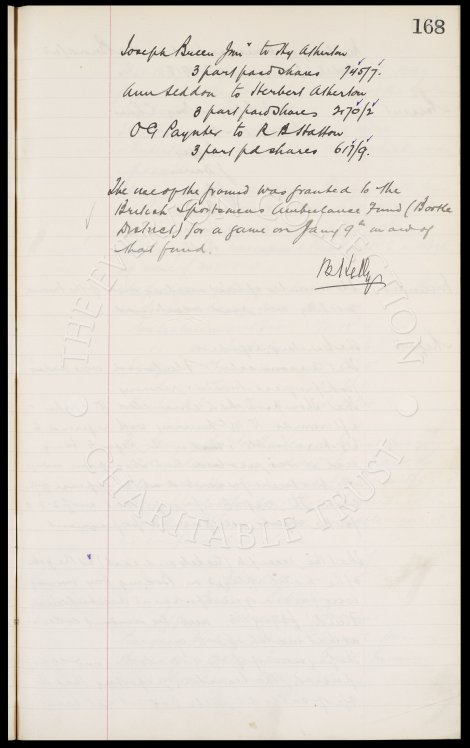 168
Joseph Breen Junr to Hy Atherton
3 part paid shares 745/7.
Ann Seddon to Herbert Atherton
3 part paid shares 2170/2
O G Paynter to R B Statton
3 part pd shares 617/9.
The use of the ground was granted to the
British Sportsmens Ambulance Fund (Bootle
District) for a game on Jany 9th in aid of
that fund.
B Kelly
THE EVERTON COLLECTION
CHARITABLE TRUST